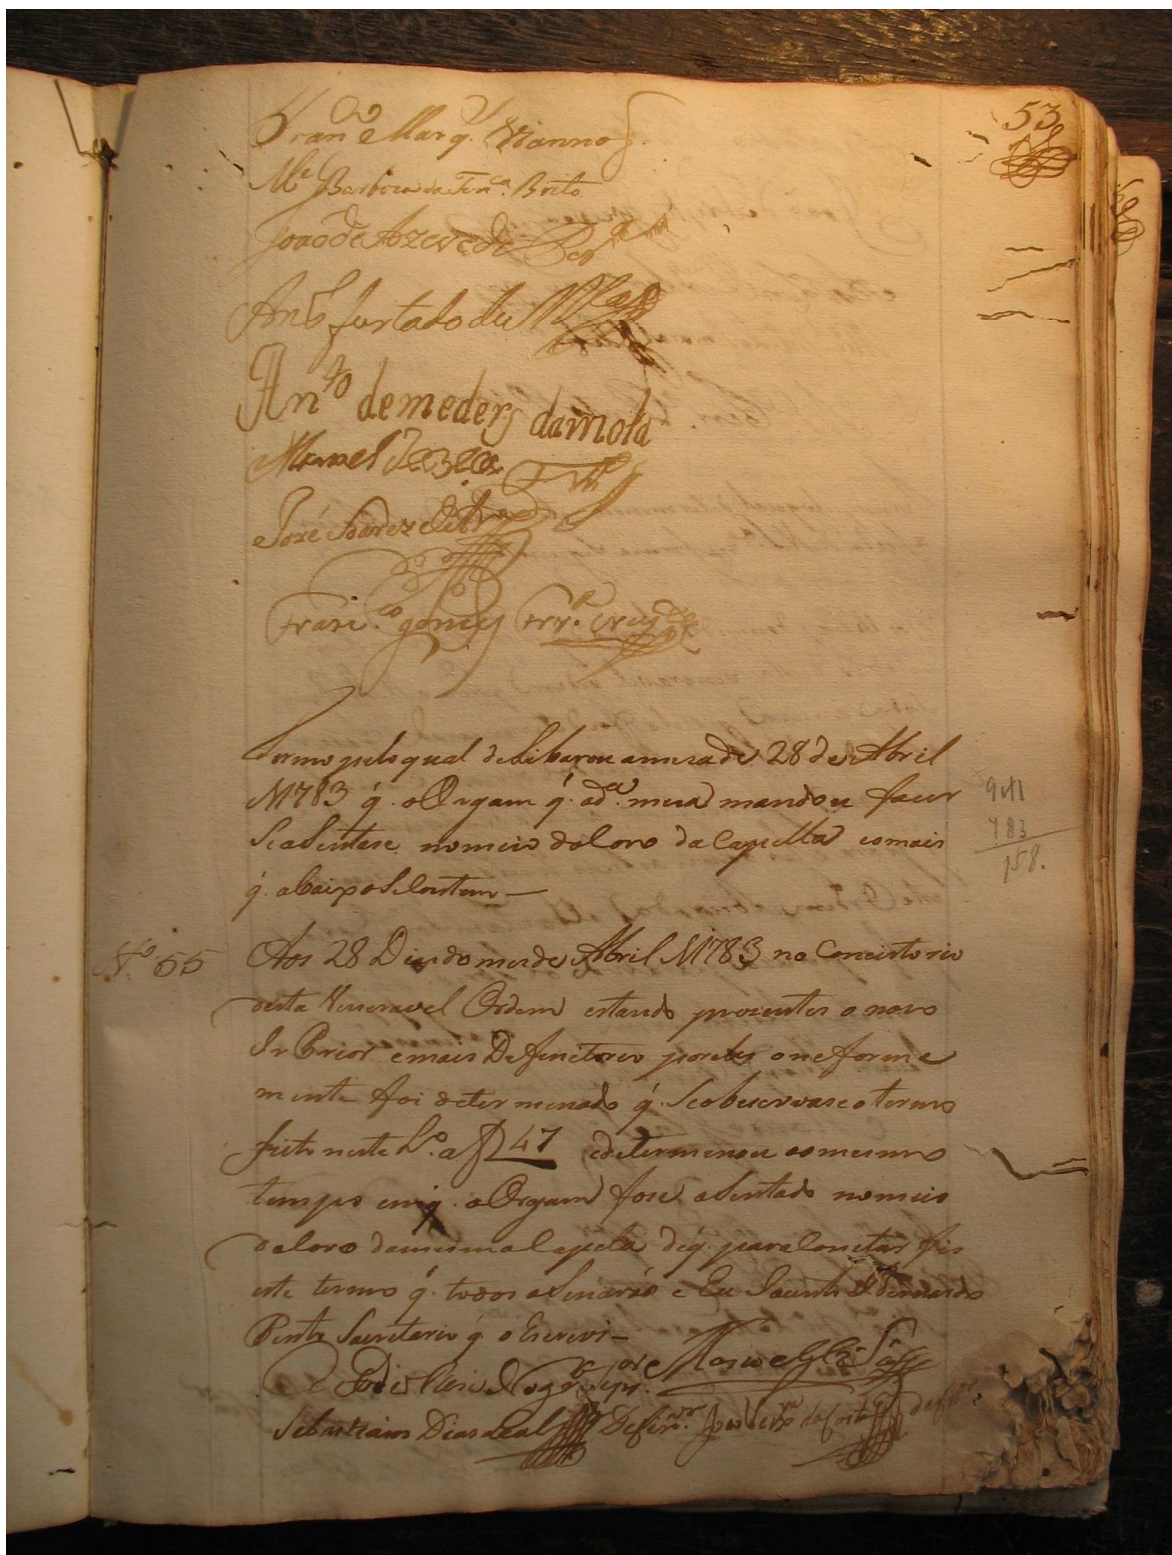 53
Fran.co Marq. Vianna
M.el Barboza da Fon.ca Brito
João de Azevedo
Ant.o furtado de
An.to demeders damota
Manoel
José Soarez de
Franc.co gomes Frr.a cruz
Termo pelo qual deLiberou a meza de 28 de Abril
M1783 q. o Orgam q. a d.a meza mandou fazer
Se aSentase no meio do Coro da Capella e o mais
q. abaixo Se Contem —
N.o 55
Aos 28 Dias do mes de Abril M1783 no Concistorio
desta Veneravel Ordem estando prozentes o novo
Ir Prior e mais Definitorio por eles oneforme
mente foi determenado q. Se obeservase o termo
feito neste L.o a f 47 e determenou ao mesmo
tempo em q. o Orgam fose aSentado no meio
do Coro da mesma Capela de q. para Constar fis
este termo q. todos aSinarão e Eu Jacinto Bernardo
Pinto Secretario q. o Escrevi —
Sebastiam Dias Leal Defin.or da Costa
941
783
158.